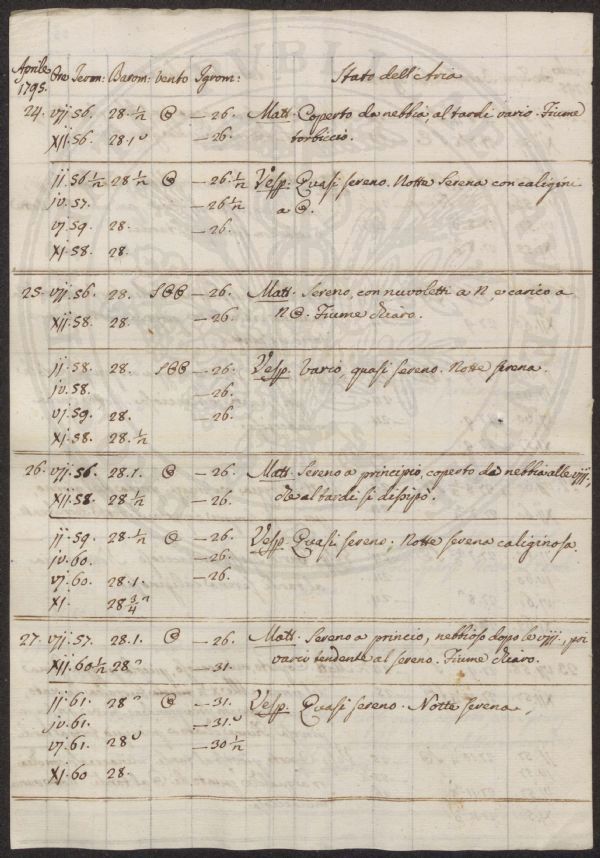 Aprile
1795. Ore Term: Barom: vento Igrom: Stato dell'Aria
24. vij. 56. 28. ½ — 26. Matt. Coperto da nebbia, al tardi vario. Fiume
xij. 56. 28. 1 — 26. torbiccio.
ij. 56 ½ 28 ½ — 26. ½ Vesp. Quasi sereno. Notte serena con caligini
iv. 57. — 26 ½ a
vj. 59 28. — 26.
xj. 58. 28.
25. vij. 56 28. — 26. Matt. Sereno, con nuvoletti a N, e carico a
xij. 58 28. — 26. Fiume chiaro.
ij. 58. 28. — 26. Vesp. Vario, quasi sereno. Notte serena.
iv. 58. — 26.
vj. 59. 28. — 26.
xj. 58. 28. ½
26. vij. 56. 28. 1. — 26. Matt. Sereno a principio, coperto da nebbia alle viij.,
xij. 58. 28. ½ — 26. che al tardi si dissipò.
ij. 59 28. ½ — 26. Vesp. Quasi sereno. Notte serena caliginosa.
iv. 60. — 26.
vj. 60. 28. 1. — 26.
xj. 28 ¾
27. vij. 57. 28. 1. — 26. Matt. Sereno a princio, nebbioso dopo le viij., poi
xij. 60 ½ 28 — 31. vario tendente al sereno. Fiume chiaro.
ij. 61. 28 — 31. Vesp. Quasi sereno. Notte serena,
iv. 61. — 31.
vj. 61. 28 — 30 ½
xj. 60 28.